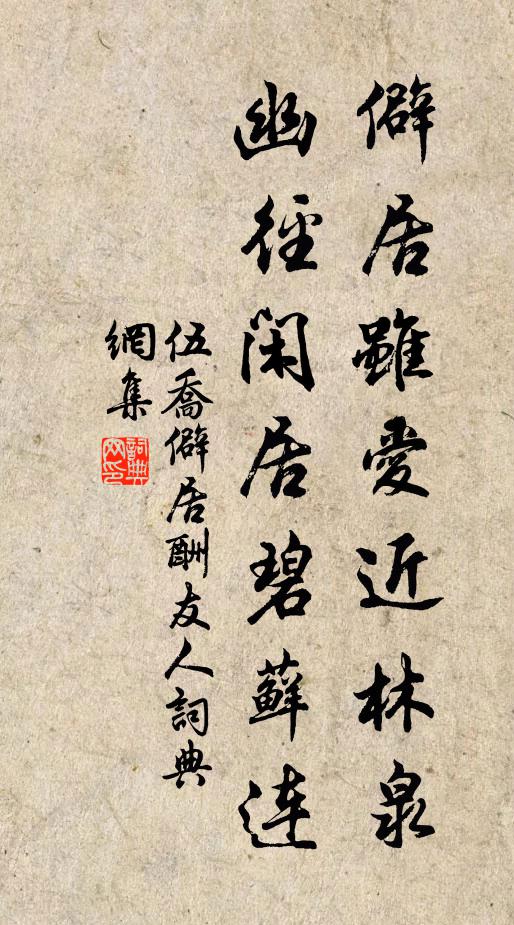 僻居雖愛近林泉
幽徑閑居碧蘚連
伍喬僻居酬友人詞典
網集
詞典
网印